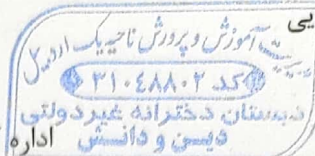 یی
مدیریت آموزش و پرورش ناحیه یک اردبیل
کد ۳۱۰۴۸۸۰۲
دبستان دخترانه غیردولتی
دین و دانش
اداره